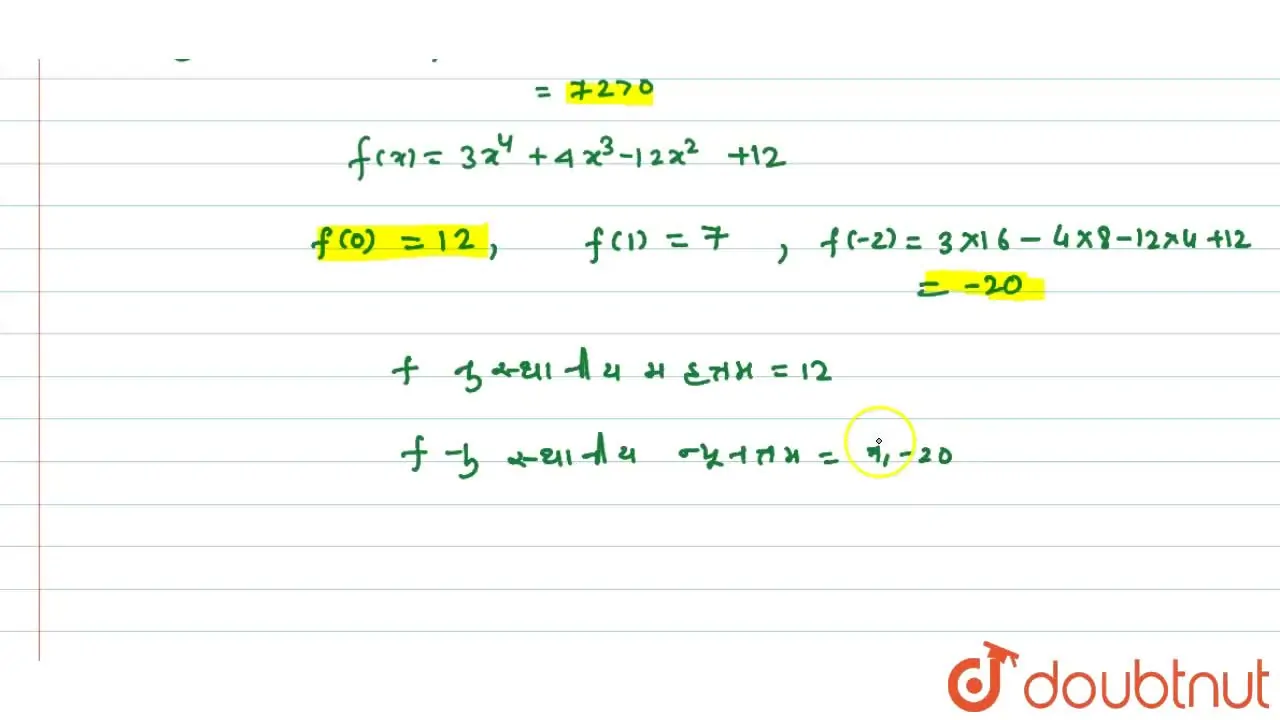 = 72>0
f(x) = 3x⁴ + 4x³ - 12x² + 12
f(0) = 12, f(1) = 7, f(-2) = 3×16 - 4×8 - 12×4 + 12
= -20
f નું સ્થાનીય મહત્તમ = 12
f નું સ્થાનીય ન્યૂનતમ = 7, -20
doubtnut